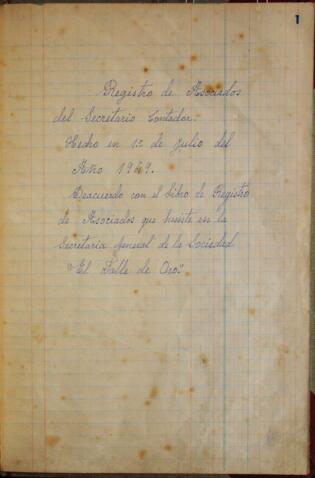 1
Registro de Asociados
del Secretario Contador.
Hecho en 1º de Julio del
Año 1949.
Deacuerdo con el Libro de Registro
de Asociados que existe en la
Secretaria general de la Sociedad
"El Valle de Oro."